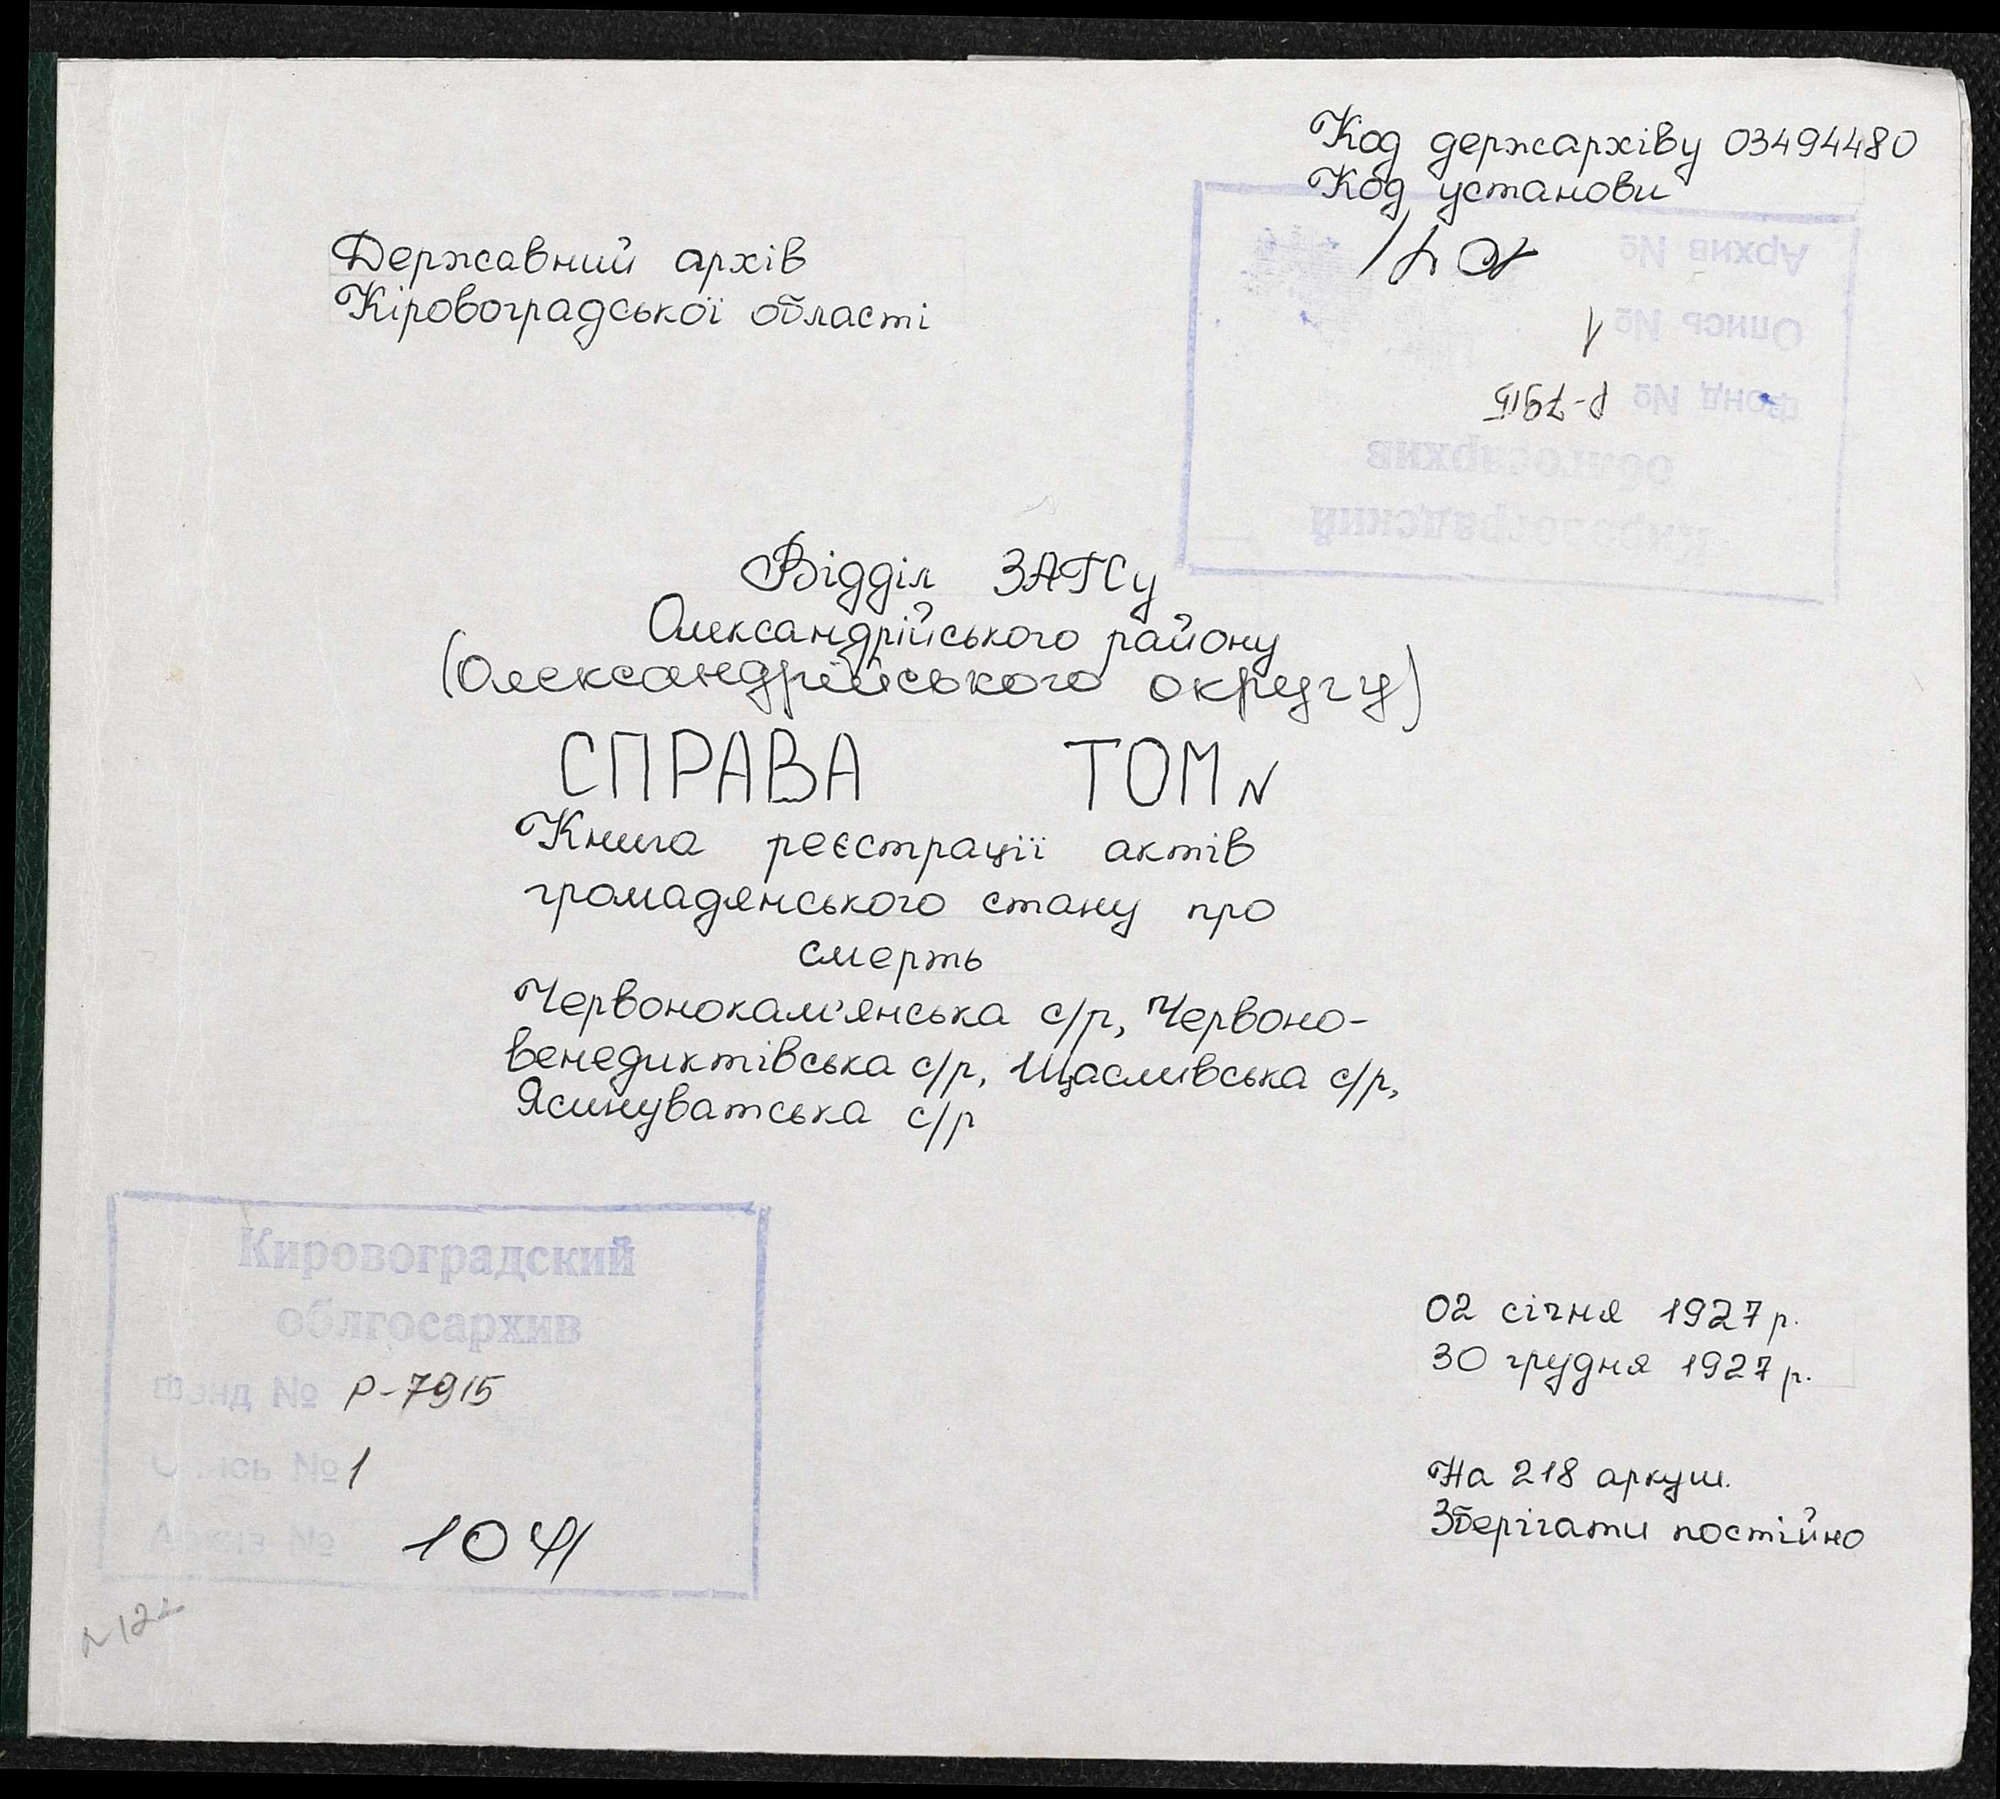 Код держархіву 03494480
Код установи
Державний архів
Кіровоградської області
Архив №
Опись № 1
Фонд № Р-7915
облгосархив
Кировоградский
Відділ ЗАГСу
Олександрійського району
(Олександрійського округу)
СПРАВА ТОМ N
Книга реєстрації актів
громадянського стану про
смерть
Червонокам'янська с/р, Червоно-
венедиктівська с/р, Щасливська с/р,
Ясинуватська с/р
Кировоградский
облгосархив
Фонд № Р-7915
Опись № 1
Архив № 104
02 січня 1927 р.
30 грудня 1927 р.
На 218 аркуш.
Зберігати постійно